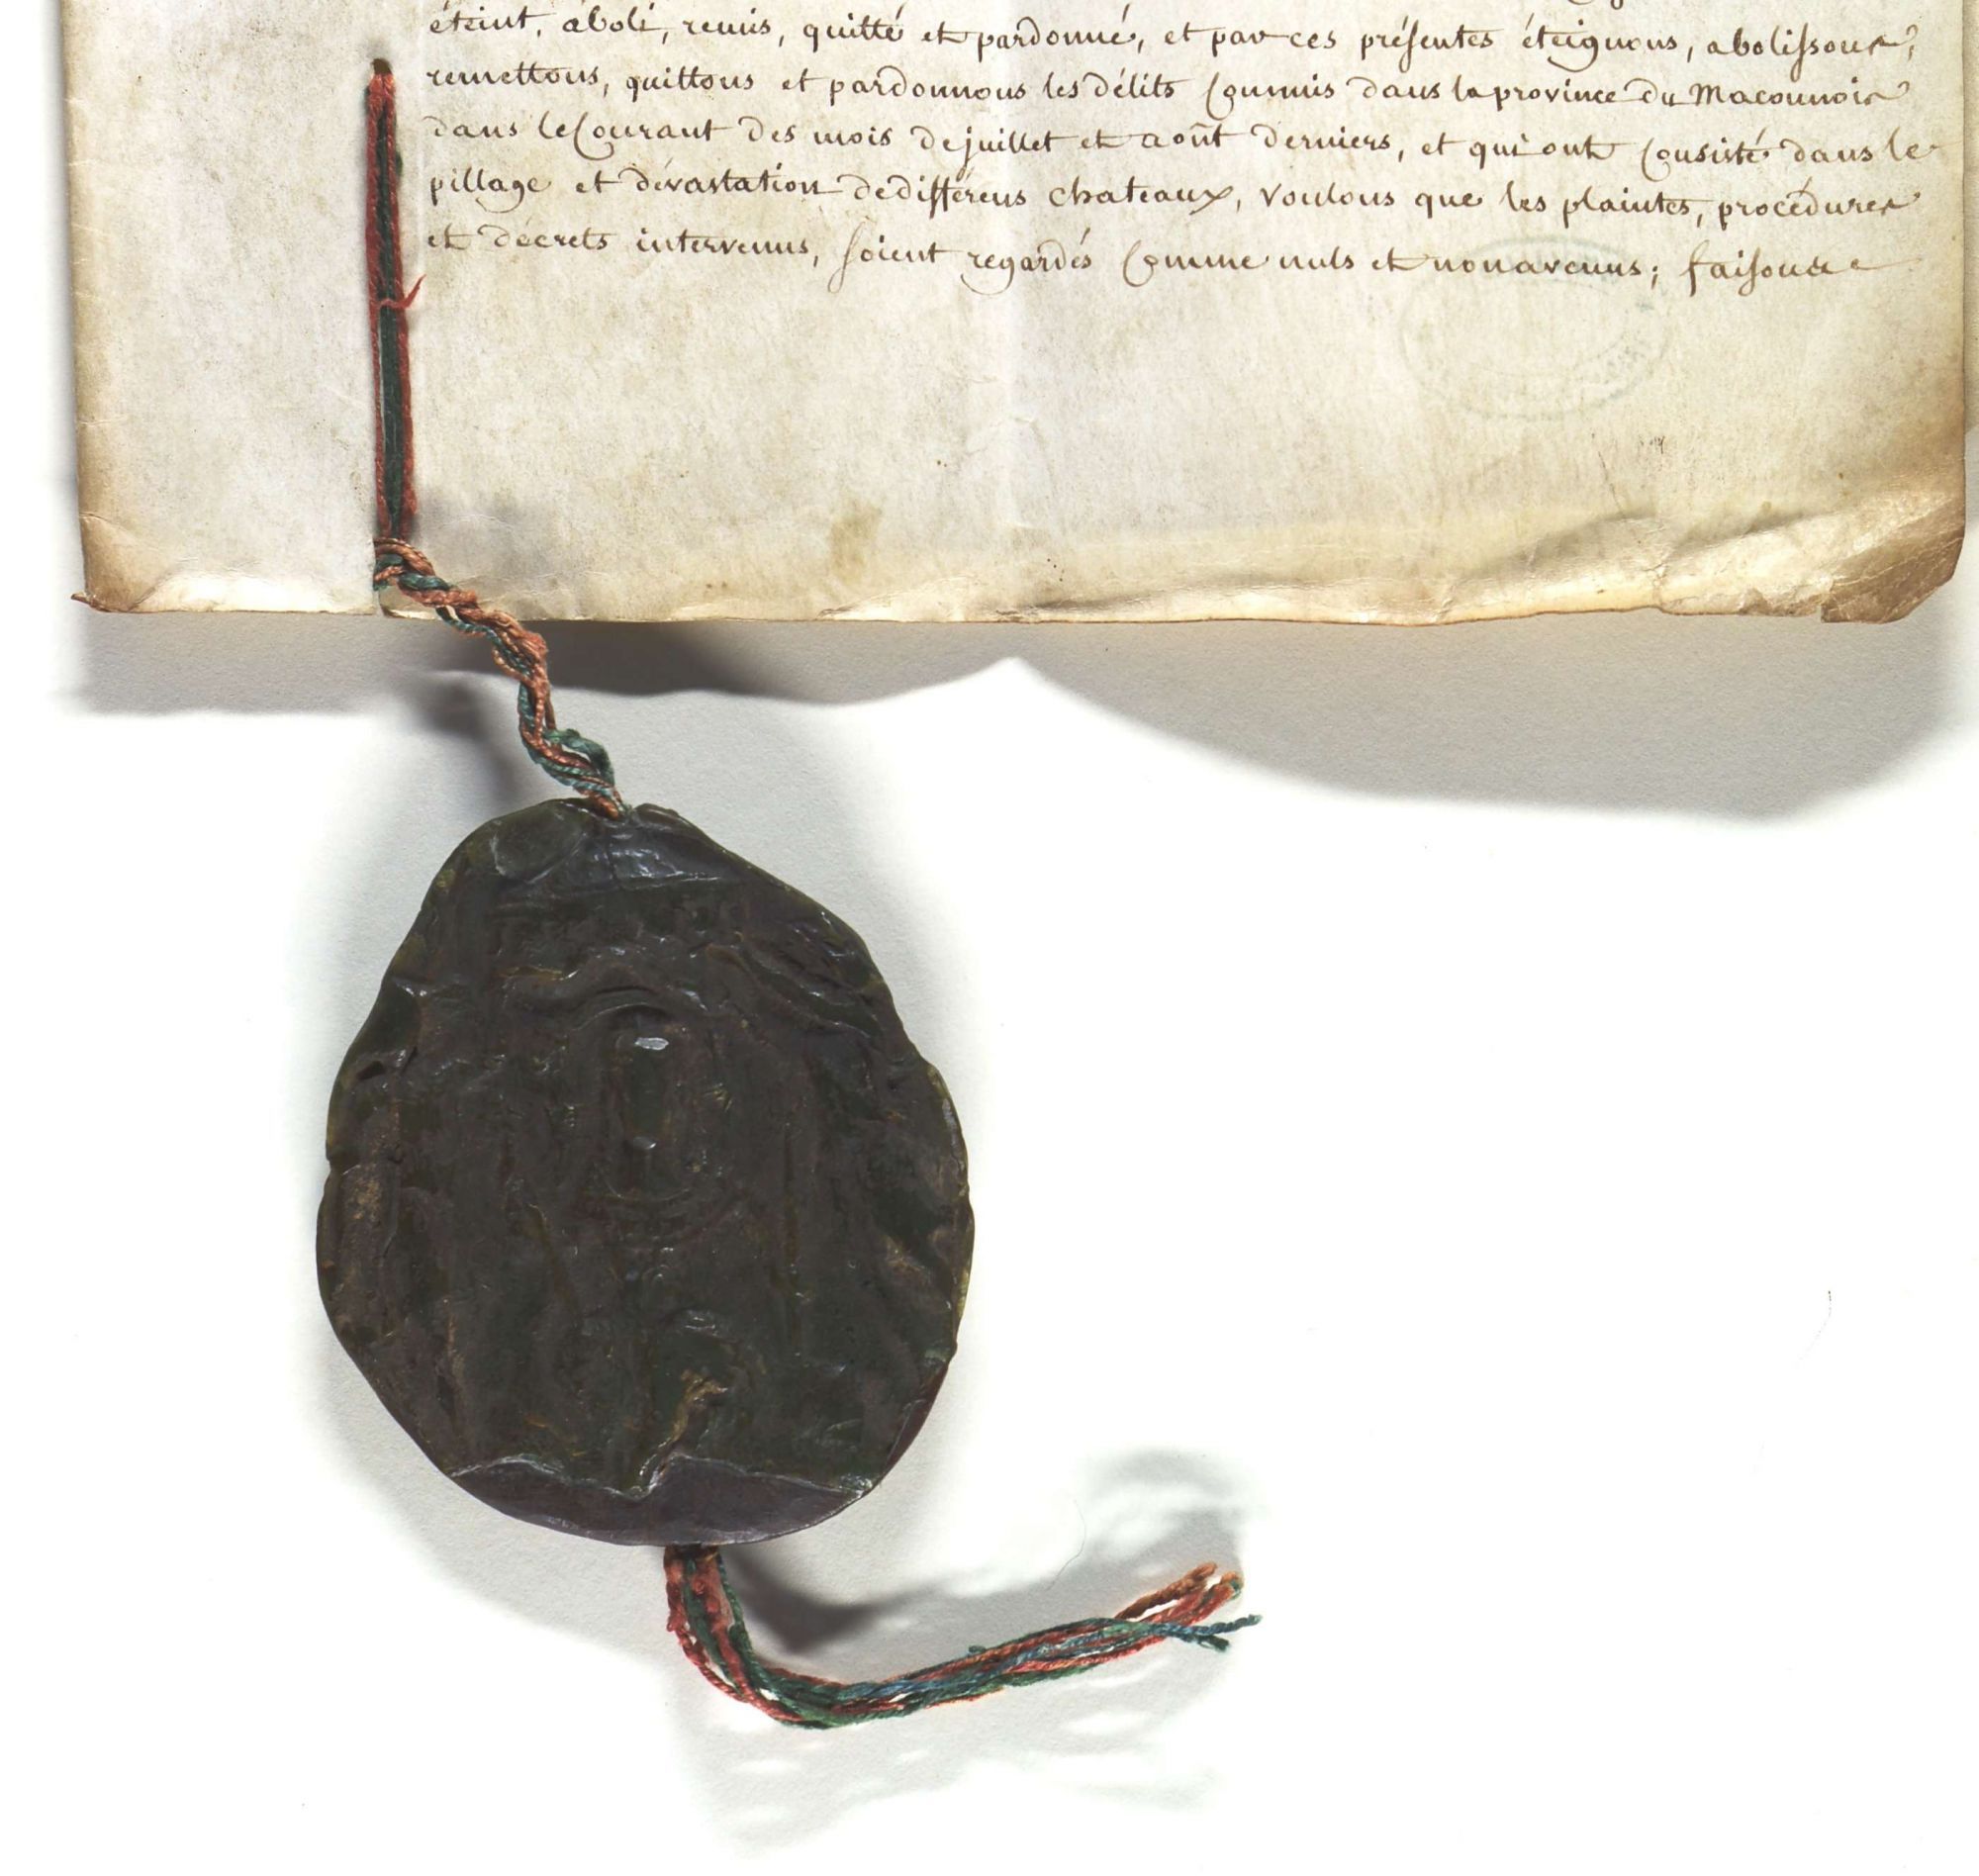 éteint, aboli, remis, quitté et pardonné, et par ces présentes éteignons, abolissons,
remettons, quittons et pardonnons les délits Commis dans la province du Maconnois
dans le Courant des mois de juillet et août derniers, et qui ont Consisté dans le
pillage et dévastation de différens chateaux, voulons que les plaintes, procédures
et décrets intervenus, soient regardés Comme nuls et non avenus; faisons